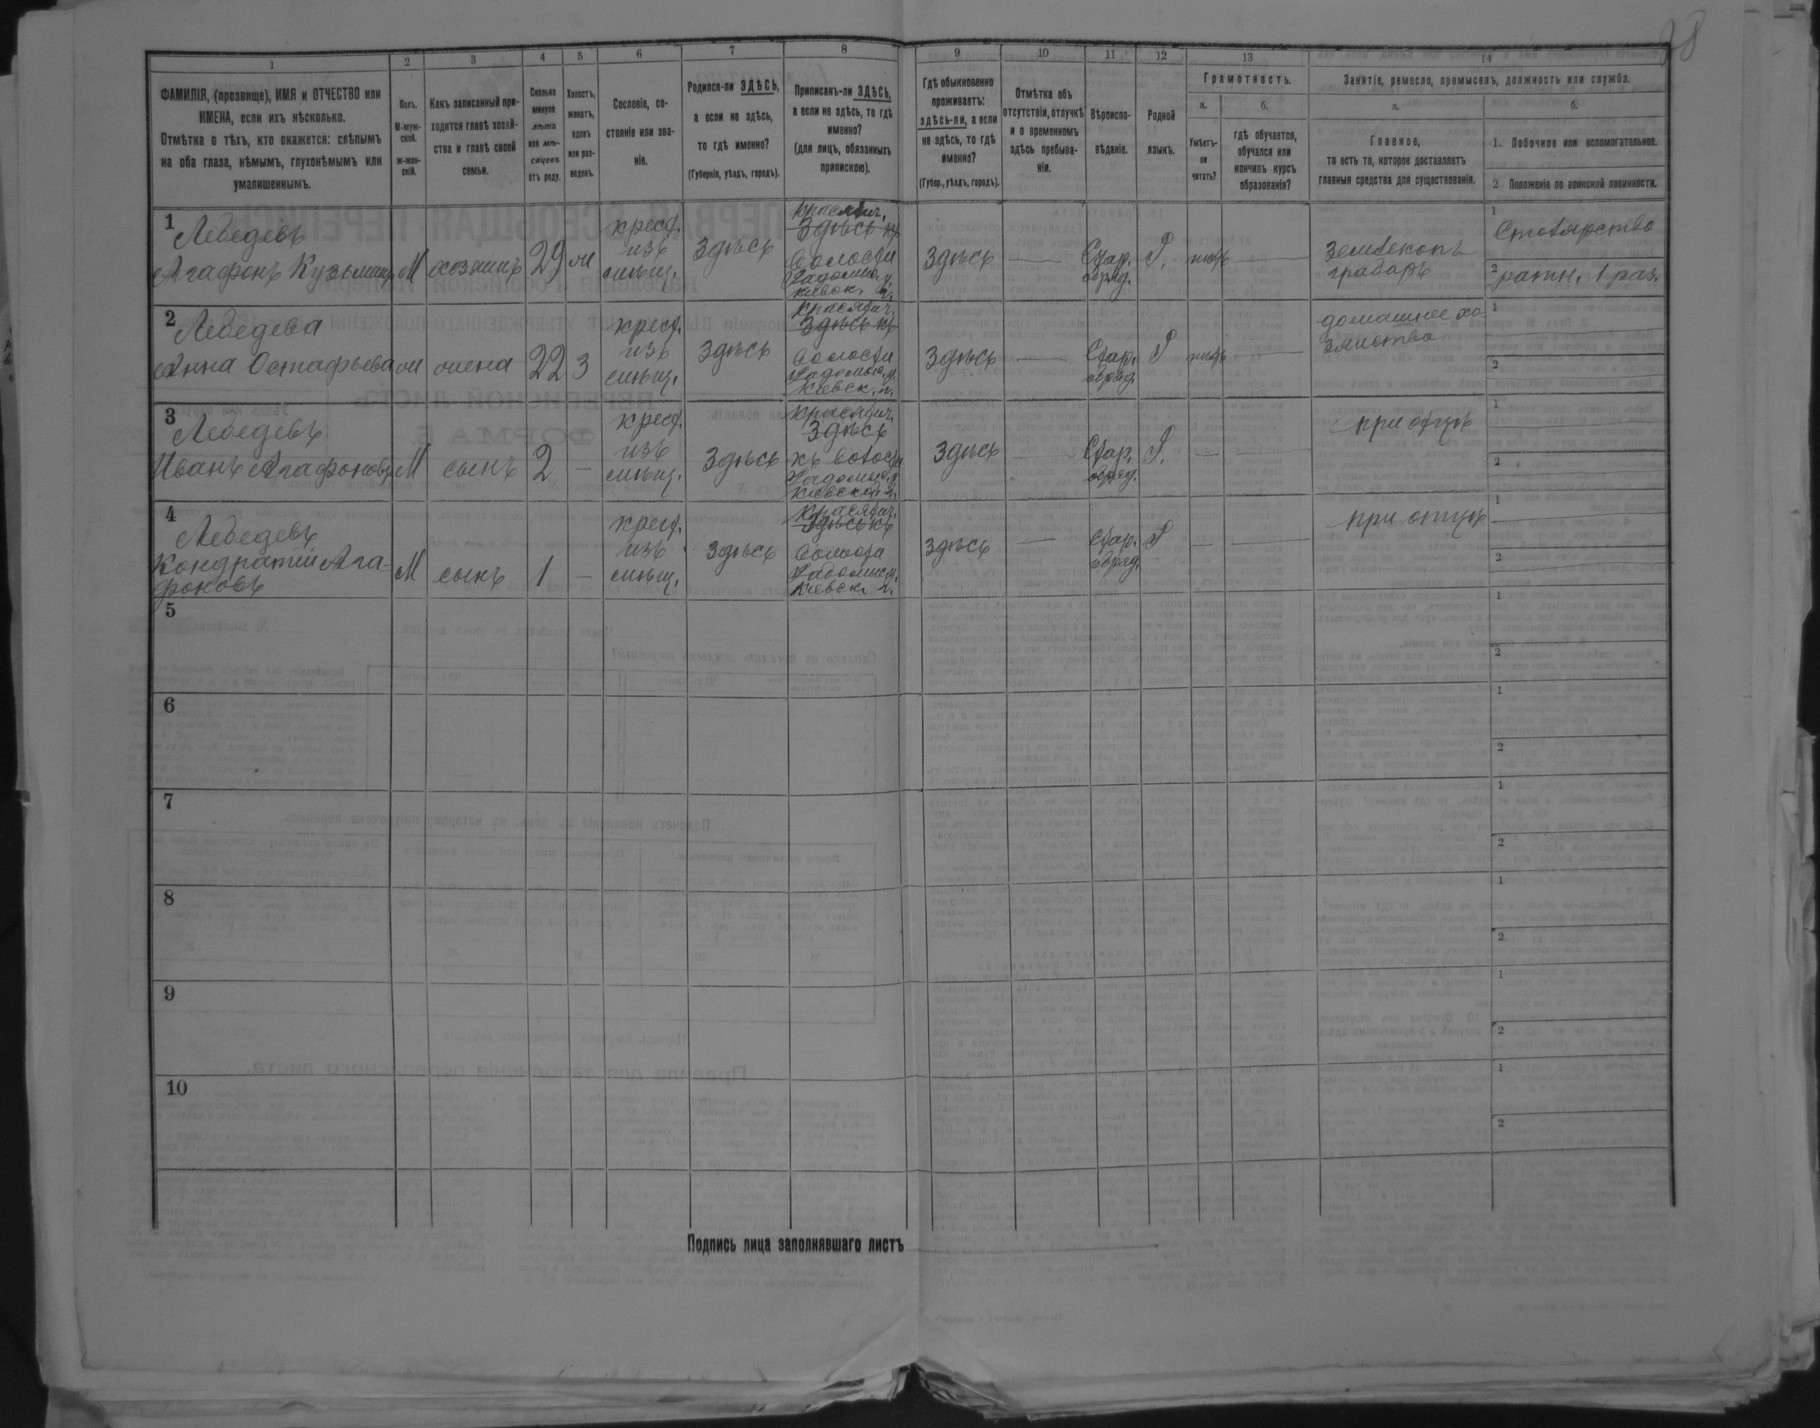 38
1 2 3 4 5 6 7 8 9 10 11 12 13 14
ФАМИЛІЯ, (прозвище), ИМЯ и ОТЧЕСТВО или
ИМЕНА, если ихъ нѣсколько.
Отмѣтка о тѣхъ, кто окажется: слѣпымъ
на оба глаза, нѣмымъ, глухонѣмымъ или
умалишеннымъ.
Полъ.
М-муж-
ской.
ж-жен-
скій.
Какъ записанный при-
ходится главѣ хозяй-
ства и главѣ своей
семьи.
Сколько
минуло
лѣтъ
или мѣ-
сяцевъ
отъ роду.
Холостъ,
женатъ,
вдовъ
или раз-
веденъ.
Сословіе, со-
стояніе или зва-
ніе.
Родился-ли ЗДѢСЬ,
а если не здѣсь,
то гдѣ именно?
(Губернія, уѣздъ, городъ).
Приписанъ-ли ЗДѢСЬ,
а если не здѣсь, то гдѣ
именно?
(для лицъ, обязанныхъ
припискою).
Гдѣ обыкновенно
проживаетъ:
здѣсь-ли, а если
не здѣсь, то гдѣ
именно?
(Губер., уѣздъ, городъ).
Отмѣтка объ
отсутствіи, отлучкѣ
и о временномъ
здѣсь пребыва-
ніи.
Вѣроиспо-
вѣданіе.
Родной
языкъ.
Грамотность.
а.
Умѣетъ-
ли
читать?
б.
гдѣ обучается,
обучался или
кончилъ курсъ
образованія?
Занятіе, ремесло, промыселъ, должность или служба.
а.
Главное,
то есть то, которое доставляетъ
главныя средства для существованія.
б.
1. Побочное или вспомогательное.
2 Положеніе по воинской повинности.
1 Лебедевъ
Агафонъ Кузьминъ М хозяинъ 29 ж
крест.
изъ
Здѣсь
Здѣсь
волости
Радомыс. у.
Киевск. г.
Здѣсь —
Стар.
обряд.
Р.
землекопъ
грабарь
1 Столярство
2 ратн. 1 раз.
2 Лебедева
Анна Остафьева ж жена 22 З
крест.
изъ
Здѣсь
Здѣсь
волости
Радомыс. у.
Киевск. г.
Здѣсь —
Стар.
обряд.
Р —
домашнее хо-
зяйство
1
2
3 Лебедевъ
Иванъ Агафоновъ М сынъ 2 —
крест.
изъ
Здѣсь
Здѣсь
Радомыс. у.
Киевской г.
Здѣсь —
Стар.
обряд.
Р. — —
при отцѣ
1
2
4 Лебедевъ
Кондратій Ага-
фоновъ М сынъ 1 —
крест.
изъ
Здѣсь
Здѣсь
волости
Радомыс. у.
Киевск. г.
Здѣсь —
Стар.
обряд.
Р — —
при отцѣ
1
2
5
1
2
6
1
2
7
1
2
8
1
2
9
1
2
10
1
2
Подпись лица заполнявшаго листъ